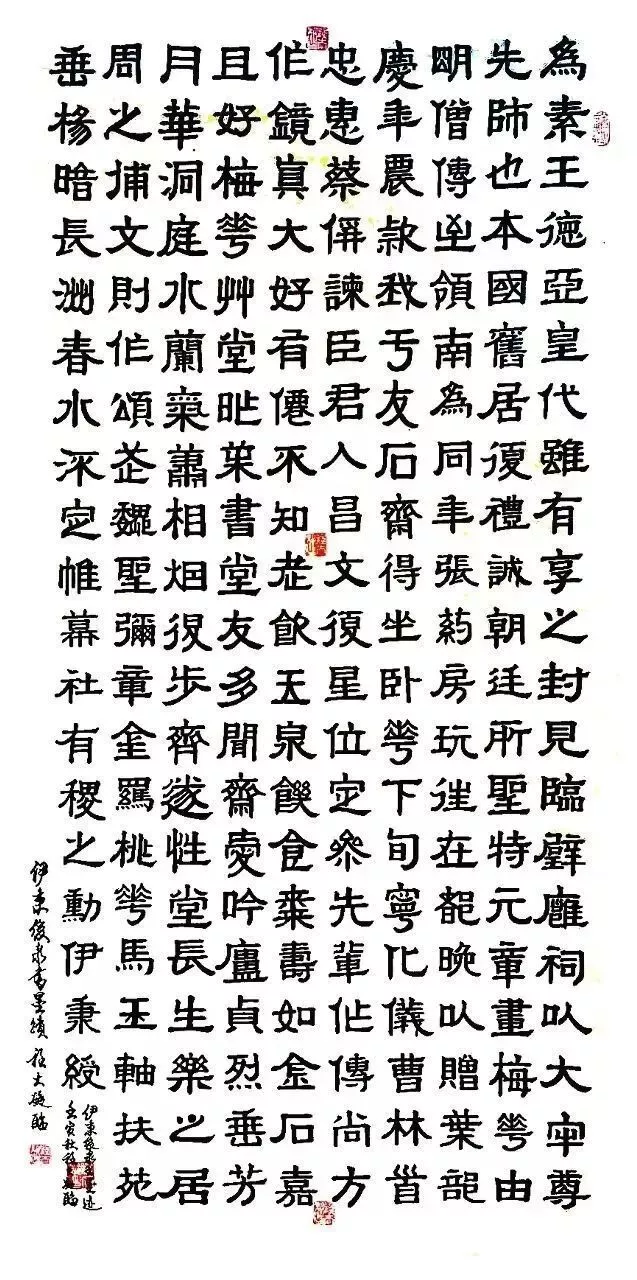 為素王德亞皇代雖有享之封見臨辟廱祠以大牢尊
先師也本國舊居復禮誠朝廷所聖特元章畫梅花由
明僧傳至領南為同年張葯房玩往在都晚以贈葉龍
慶年震款我于友石齋得坐臥花下旬寧化儀曹林首
忠惠蔡諫臣君人昌文復星位定參先輩作傳尚方
作鏡真大好有僊不知老飲玉泉饑食棗壽如金石嘉
且好梅花艸堂昨葉書堂友多聞齋愛吟廬貞烈垂芳
月華洞庭水蘭氣蕭相烟後步齊遂性堂長生樂之居
周之捕文則作頌若魏聖彌章金羈桃花馬玉軸扶苑
垂楊暗長洲春水深定帷幕社有稷之勳伊秉綬
伊秉綬墨迹
壬寅秋臨
伊秉綬書墨蹟大臨